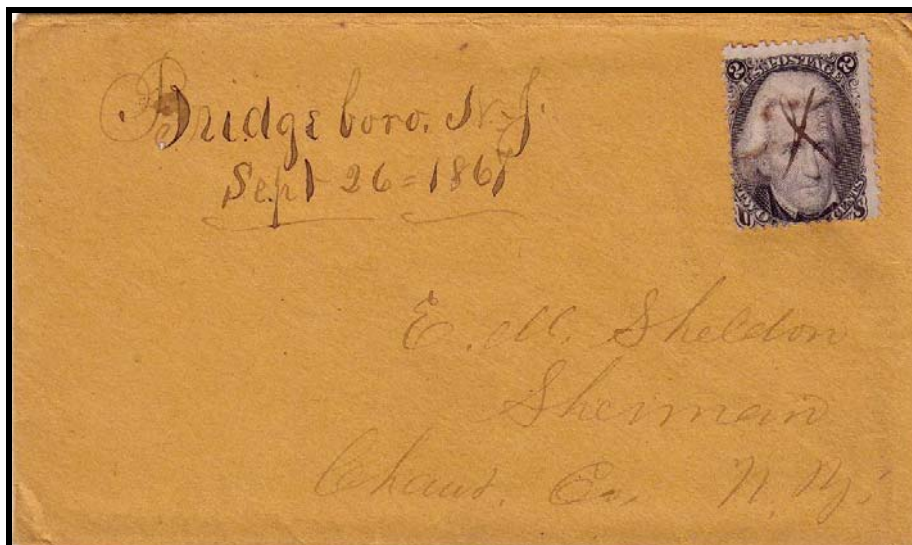 Bridgeboro. N.J.
Sept 26 = 1867
2 POSTAGE 2
U TWO CENTS S
E. M. Sheldon
Sherman
Chaut. Co. N. Y.